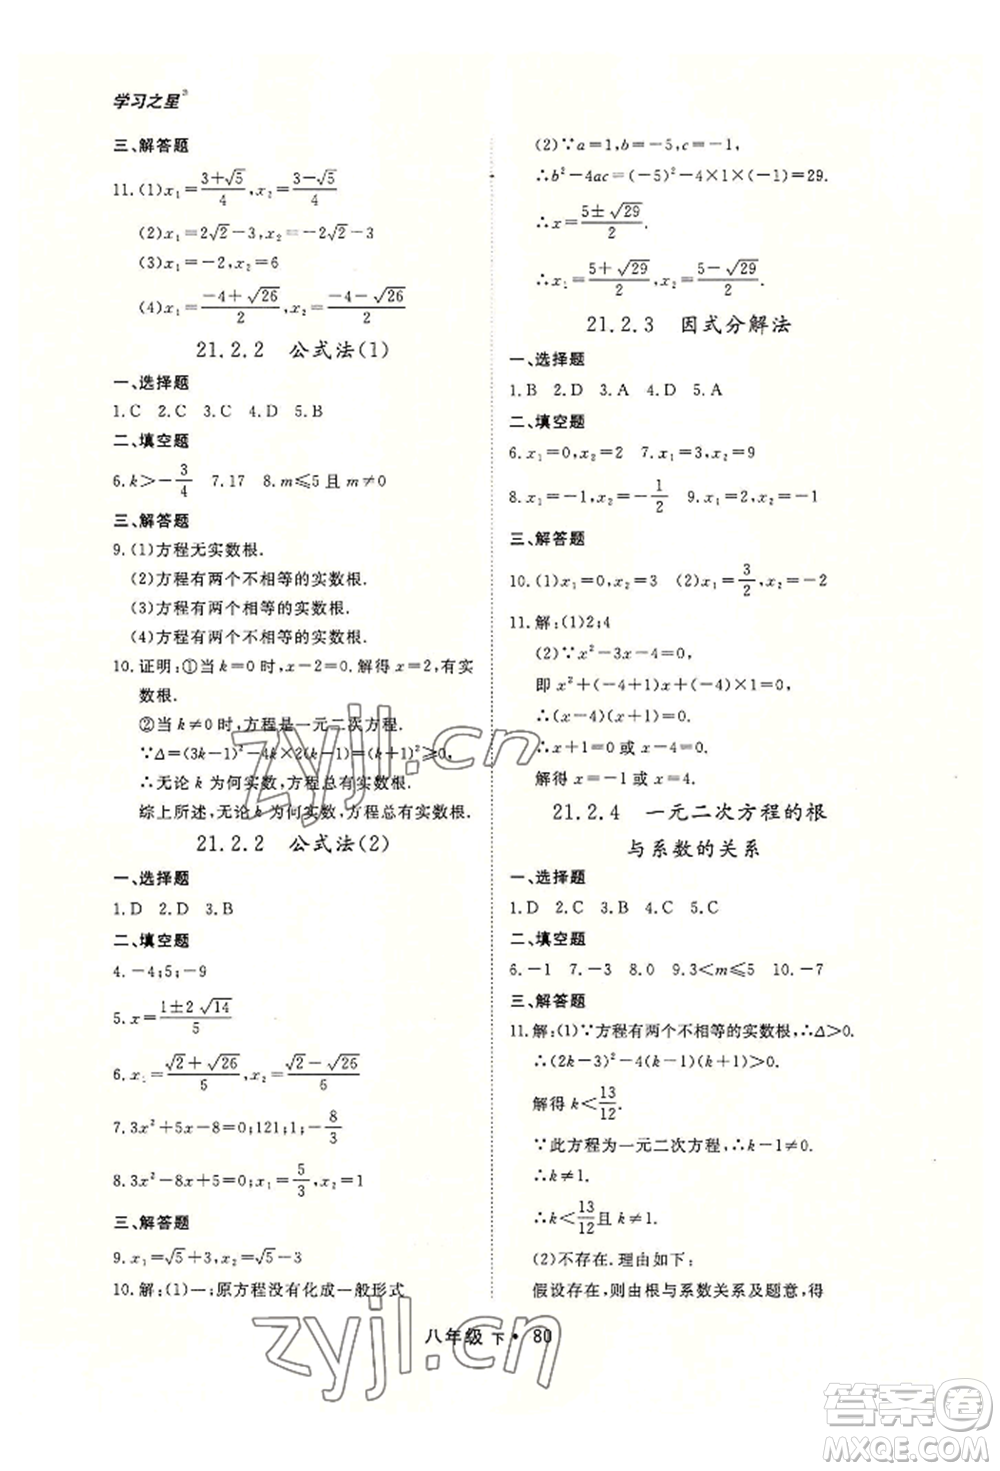 学习之星
三、解答题
11.(1)x₁=(3+√5)/4,x₂=(3-√5)/4
(2)x₁=2√2-3,x₂=-2√2-3
(3)x₁=-2,x₂=6
(4)x₁=(-4+√26)/2,x₂=(-4-√26)/2
21.2.2 公式法(1)
一、选择题
1.C 2.C 3.C 4.D 5.B
二、填空题
6.k>-3/4 7.17 8.m≤5且m≠0
三、解答题
9.(1)方程无实数根.
(2)方程有两个不相等的实数根.
(3)方程有两个相等的实数根.
(4)方程有两个不相等的实数根.
10.证明:①当k=0时,x-2=0.解得x=2,有实
数根.
②当k≠0时,方程是一元二次方程.
∵Δ=(3k-1)²-4k×2(k-1)=(k+1)²≥0,
∴无论k为何实数,方程总有实数根.
综上所述,无论k为何实数,方程总有实数根.
21.2.2 公式法(2)
一、选择题
1.D 2.D 3.B
二、填空题
4.-4;5;-9
5.x=(1±2√14)/5
6.x₁=(√2+√26)/6,x₂=(√2-√26)/6
7.3x²+5x-8=0;121;1;-8/3
8.3x²-8x+5=0;x₁=5/3,x₂=1
三、解答题
9.x₁=√5+3,x₂=√5-3
10.解:(1)一;原方程没有化成一般形式
(2)∵a=1,b=-5,c=-1,
∴b²-4ac=(-5)²-4×1×(-1)=29.
∴x=(5±√29)/2.
∴x₁=(5+√29)/2,x₂=(5-√29)/2.
21.2.3 因式分解法
一、选择题
1.B 2.D 3.A 4.D 5.A
二、填空题
6.x₁=0,x₂=5 7.x₁=3,x₂=9
8.x₁=-1,x₂=-1/2 9.x₁=2,x₂=-1
三、解答题
10.(1)x₁=0,x₂=3 (2)x₁=3/2,x₂=-2
11.解:(1)2;4
(2)∵x²-3x-4=0,
即x²+(-4+1)x+(-4)×1=0,
∴(x-4)(x+1)=0.
∴x+1=0或x-4=0.
解得x=-1或x=4.
21.2.4 一元二次方程的根
与系数的关系
一、选择题
1.D 2.C 3.D 4.C 5.C
二、填空题
6.-1 7.-3 8.0 9.3<m≤5 10.-7
三、解答题
11.解:(1)∵方程有两个不相等的实数根,∴Δ>0.
∴(2k-3)²-4(k-1)(k+1)>0.
解得k<13/12.
∵此方程为一元二次方程,∴k-1≠0.
∴k≠1.
∴k<13/12且k≠1.
(2)不存在.理由如下:
假设存在,则由根与系数关系及题意,得
八年级 下·80
zyjl.cn
zyjl.cn
答案圈
MXQE.COM